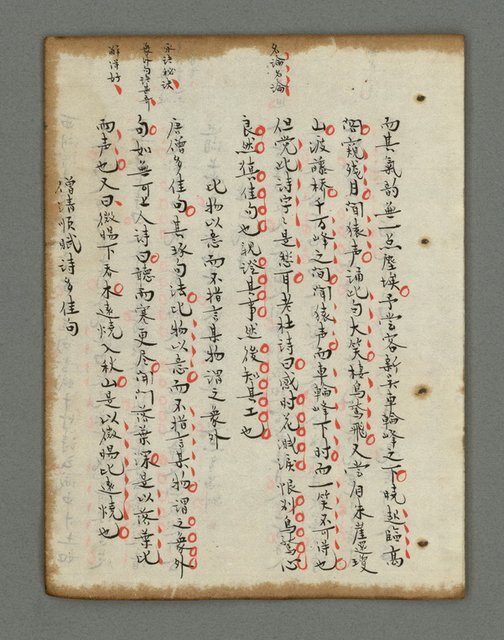 名論名論
而其氣韻無一点塵埃予嘗客新吳車輪峰之下曉起臨高
閣窺殘月聞猿声誦此句大笑棲鳥驚飛又嘗自朱崖還瓊
山渡藤橋千万峰之間聞猿声而車輪峰下时而一笑不可得也
但覚此詩字々是愁耳老杜詩曰感时花濺淚恨別鳥驚心
良然真佳句也親證其事然後知其工也
比物以意而不指言某物謂之象外
秘訣
唐僧多佳句其琢句法比物以意而不指言某物謂之象外
象外句語甚奇
句如無可上人詩曰聽雨寒更尽開門落葉深是以落葉比
解得好
雨声也又曰微陽下喬木遠燒入秋山是以微陽比遠燒也
僧清順賦詩多佳句